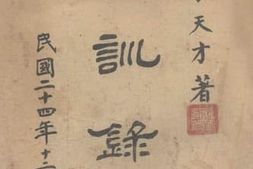 天才著
訓錄
民國二十四年十二